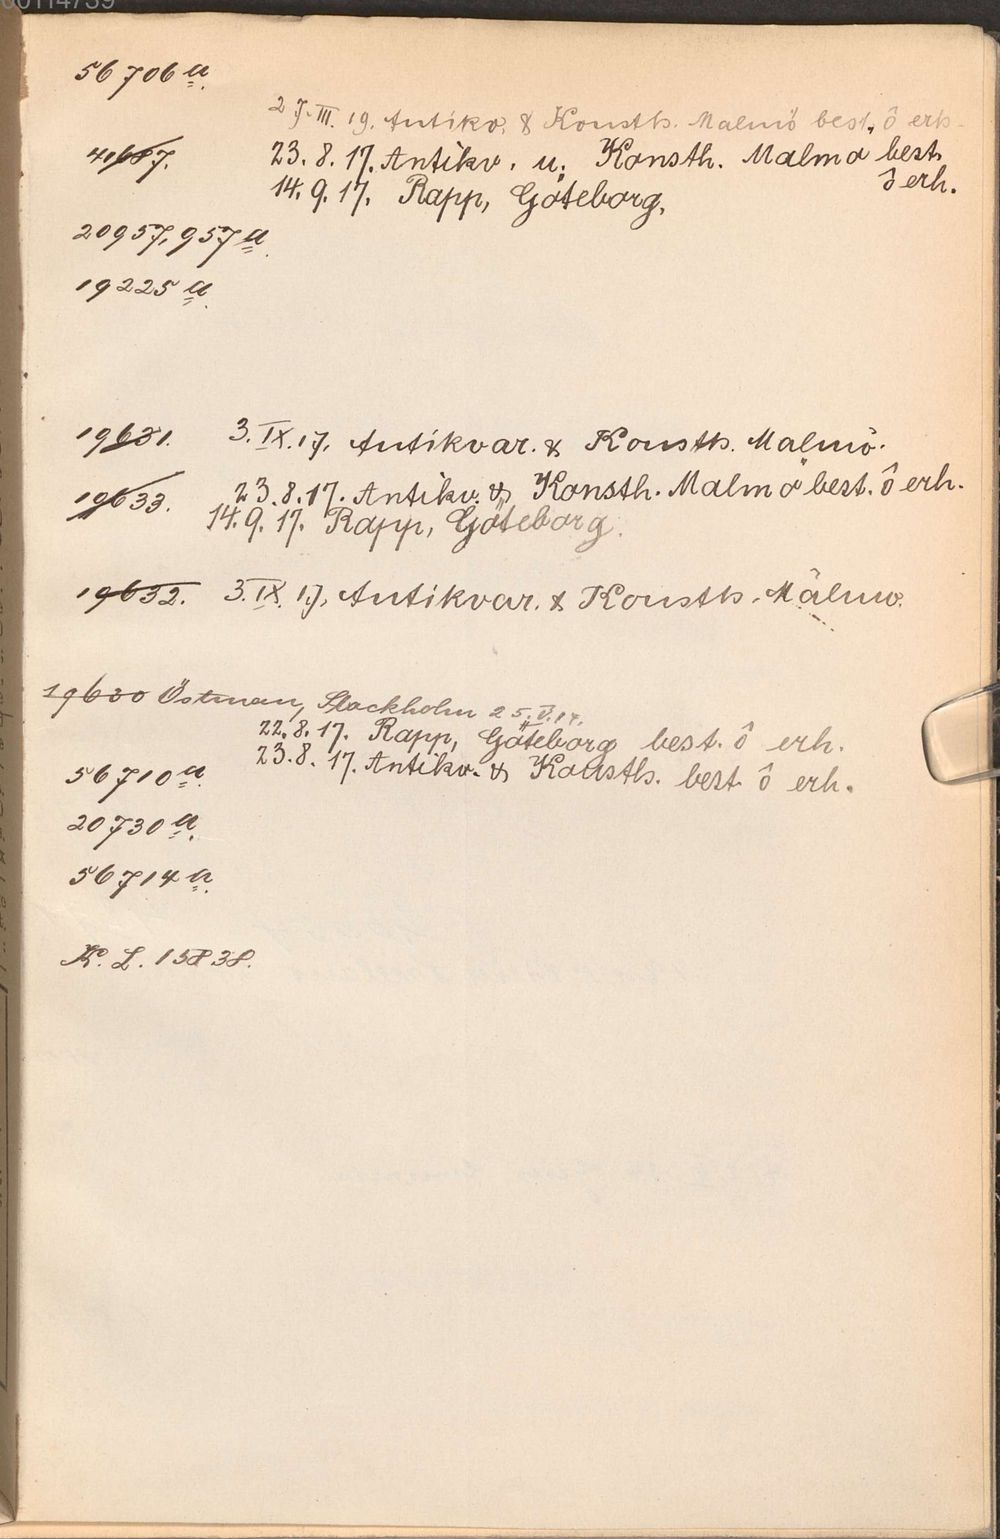 00114739
56706 a.
27.III.19. Antikv. & Konsth. Malmö best. ô erh.
41687. 23.8.17. Antikv. u. Konsth. Malmö best.
ô erh.
14.9.17. Rapp, Göteborg.
20957, 957 a.
19225 a.
19631. 3.IX.17. Antikvar. & Konsth. Malmö.
19633. 23.8.17. Antikv. & Konsth. Malmö best. ô erh.
14.9.17. Rapp, Göteborg.
19632. 3.IX.17. Antikvar. & Konsth. Malmö.
19630 Östman, Stockholm 25.V.17.
22.8.17. Rapp, Göteborg best. ô erh.
23.8.17. Antikv. & Konsth. best. ô erh.
56710 a.
20730 a.
56714 a.
K. L. 15838.